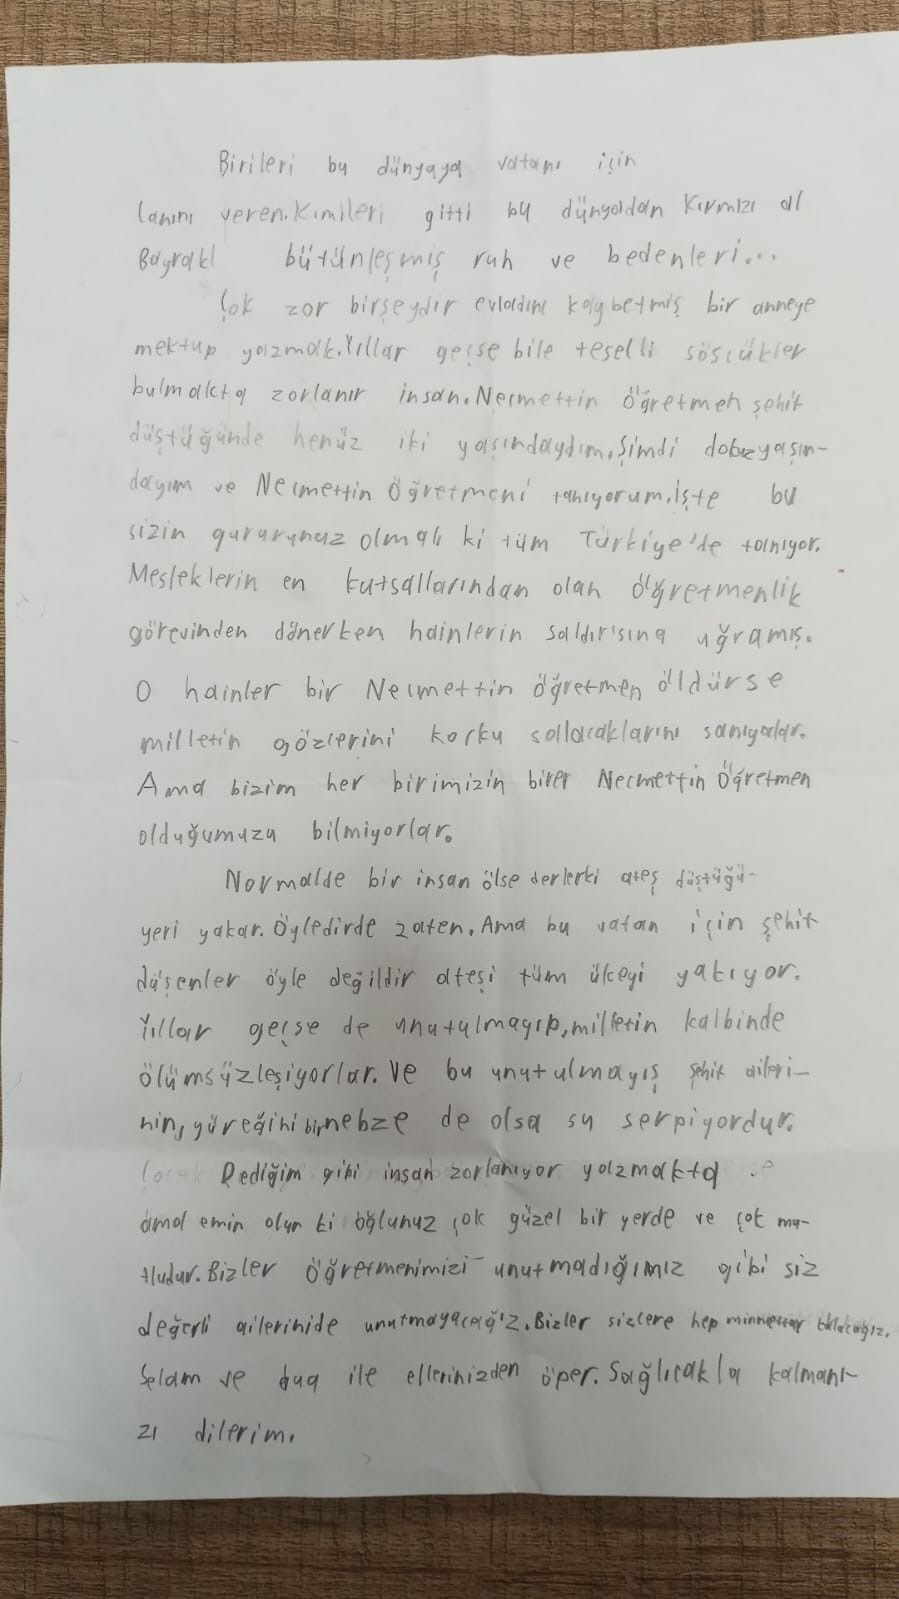 Birileri bu dünyaya vatanı için
canını veren.Kimileri gitti bu dünyadan Kırmızı al
Bayrakl bütünleşmiş ruh ve bedenleri...
Çok zor birşeydir evladını kaybetmiş bir anneye
mektup yazmak.Yıllar geçse bile teselli sösçükler
bulmakta zorlanır insan.Necmettin Öğretmen şehit
düştüğünde henüz iki yaşındaydım.Şimdi dokuzyaşın-
dayım ve Necmettin Öğretmeni tanıyorum.İşte bu
sizin gururunuz olmalı ki tüm Türkiye'de tanıyor.
Mesleklerin en kutsallarından olan öğretmenlik
görevinden dönerken hainlerin saldırısına uğramış.
O hainler bir Necmettin öğretmen öldürse
milletin gözlerini korku sallacaklarını sanıyorlar.
Ama bizim her birimizin birer Necmettin Öğretmen
olduğumuzu bilmiyorlar.
Normalde bir insan ölse derlerki ateş düştüğü-
yeri yakar.Öyledirde zaten.Ama bu vatan için şehit
düşenler öyle değildir ateşi tüm ülkeyi yakıyor.
Yıllar geçse de unutulmayıp,milletin kalbinde
ölümsüzleşiyorlar.Ve bu unutulmayış şehit aileri-
nin,yüreğini bir nebze de olsa su serpiyordur.
Dediğim gibi insan zorlanıyor yazmakta
ama emin olun ki oğlunuz çok güzel bir yerde ve çok mu-
tludur.Bizler öğretmenimizi unutmadığımız gibi siz
değerli ailerinide unutmayacağız.Bizler sizlere hep minnettar
Selam ve dua ile ellerinizden öper.Sağlıcakla kalmanı-
zı dilerim.